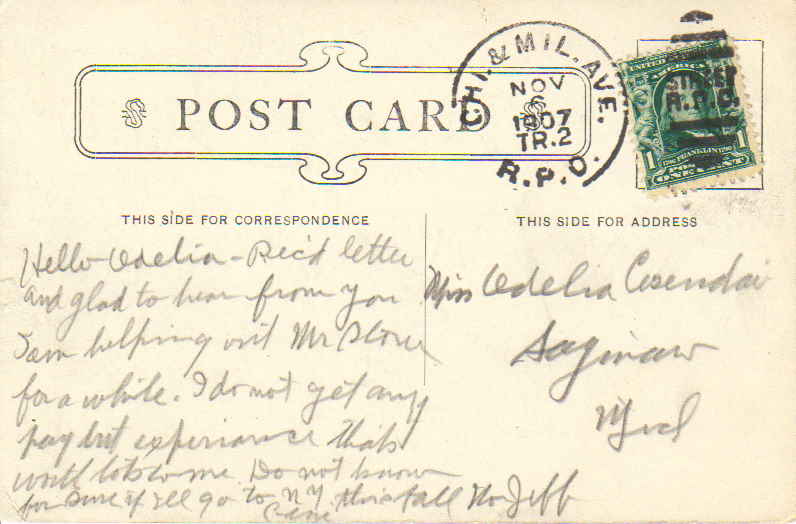 CHI. & MIL. AVE.
NOV
6
1907
TR.2
R.P.O.
UNITED STATES OF AMERICA
STREET
R.P.O.
1 FRANKLIN 1
ONE CENT
POST CARD
THIS SIDE FOR CORRESPONDENCE
THIS SIDE FOR ADDRESS
Hello Odelia - Rec'd letter
and glad to hear from you
I am helping out Mr Stone
for a while. I do not get any
pay but experiance thats
worth lots to me. Do not know
for sure if I'll go to N.Y. this Fall No Jeff
Miss Odelia Cosendai
Saginaw
Mich